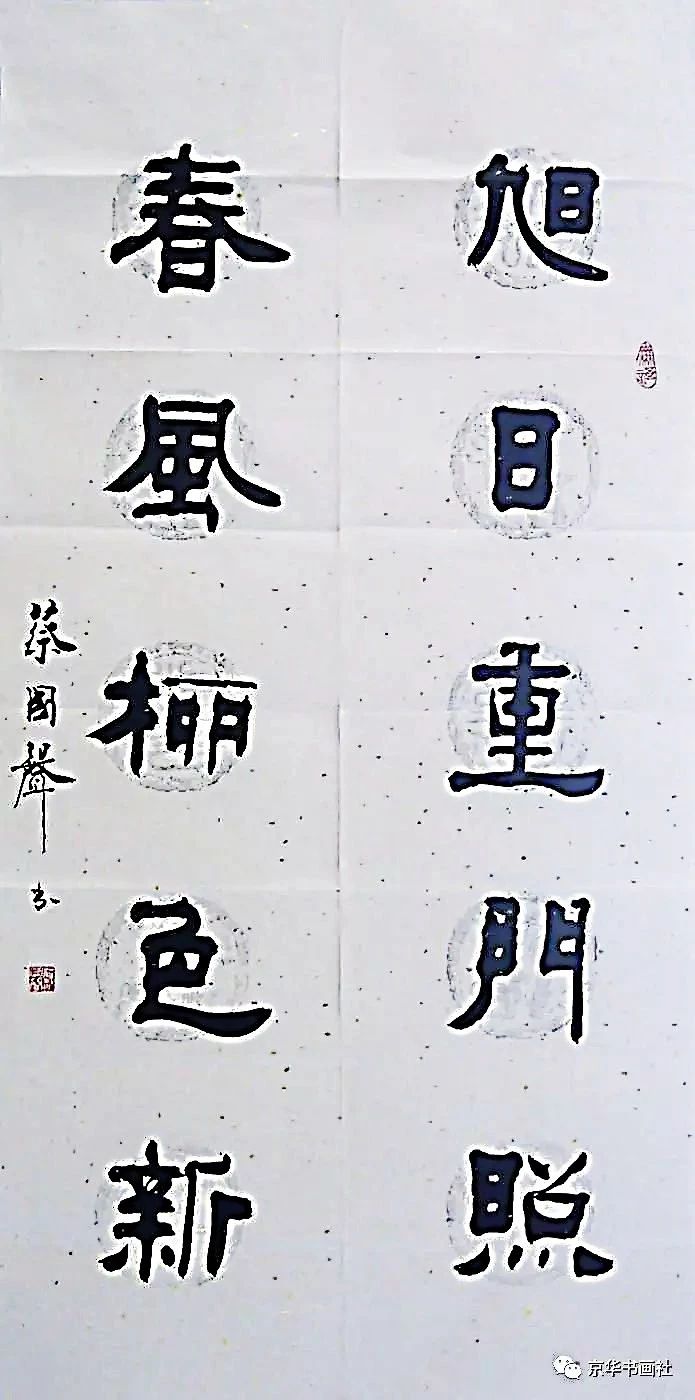 旭日重門照
春風柳色新
蔡國聲书
京华书画社